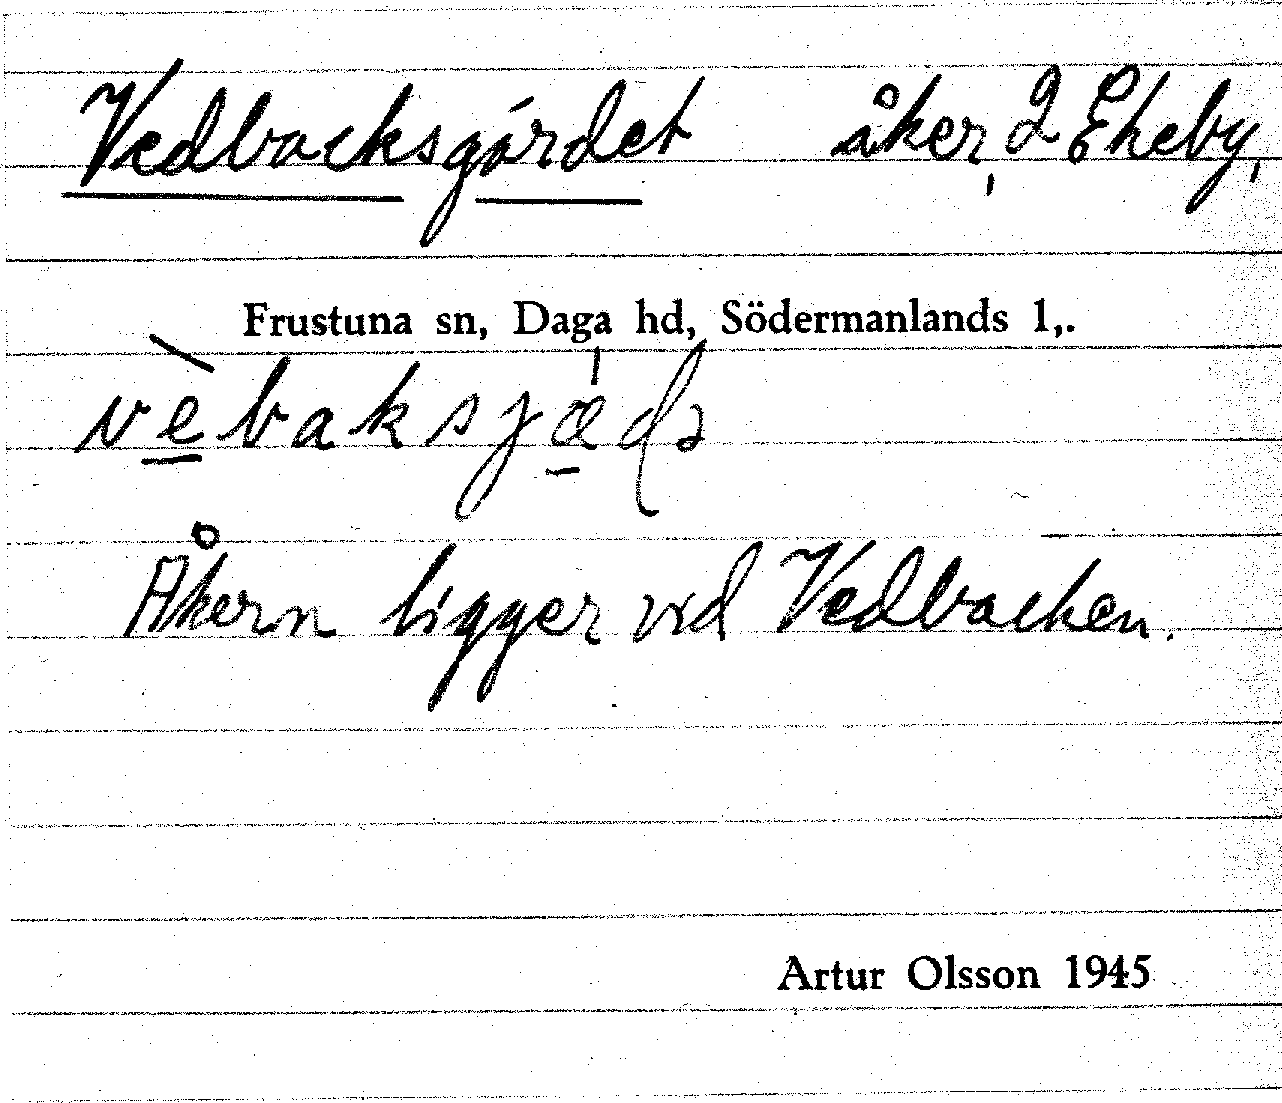 Vedbacksgärdet åker, 2 Eheby,
Frustuna sn, Daga hd, Södermanlands l,.
vèbaksjæ̍də
Åkern ligger vid Vedbacken.
Artur Olsson 1945